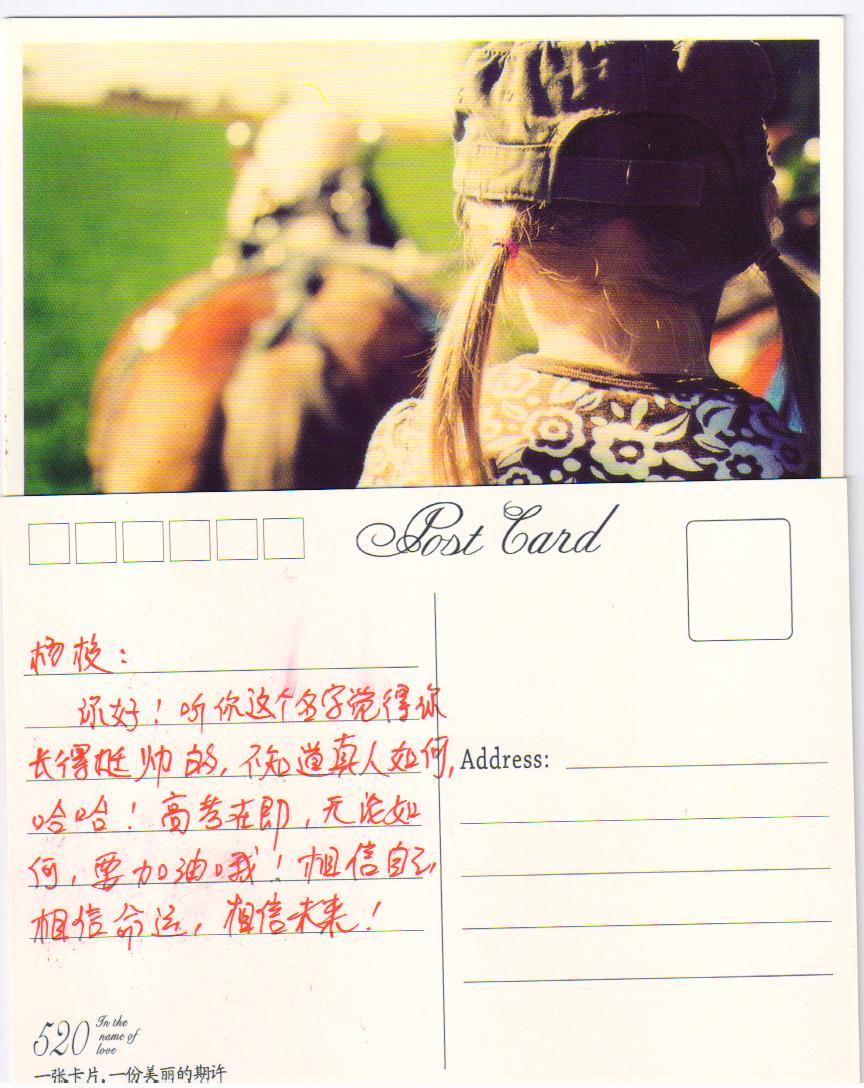 Post Card
杨梭：
你好！听你这个名字觉得你
长得挺帅的，不知道真人如何，
哈哈！高考在即，无论如
何，要加油哦！相信自己，
相信命运，相信未来！
Address:
520
In the
name of
love
一张卡片，一份美丽的期许